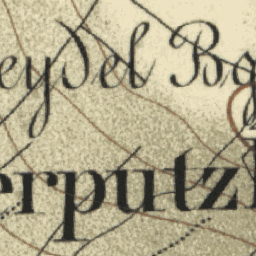 eydel Bg
erputzl